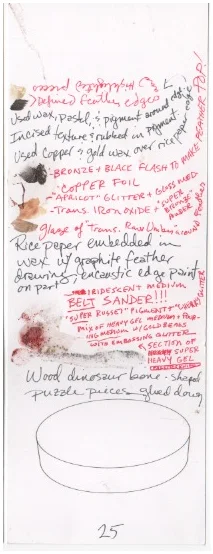 > Defined feather edges
Used wax, pastel, & pigment around edge.
Incised texture & rubbed in pigment.
Used copper & gold wax over rice paper edge
- BRONZE + BLACK FLASH TO MAKE FEATHER TOP!
- COPPER FOIL
- "APRICOT" GLITTER + GLASS MIXED
"SUPER BRONZE"
- Trans. IRON OXIDE +
glaze of "Trans. Raw Umber" around
Rice paper embedded in
wax w/ graphite feather
drawing, encaustic edge paint
on part
IRIDESCENT MEDIUM
BELT SANDER!!!
"SUPER RUSSET" PIGMENT +
MIX OF HEAVY GEL MEDIUM + POUR-
ING MEDIUM W/ GOLD BEADS
WITH EMBOSSING GLITTER
SECTION OF
SUPER
HEAVY GEL
Wood dinosaur bone-shaped
puzzle pieces glued down
25